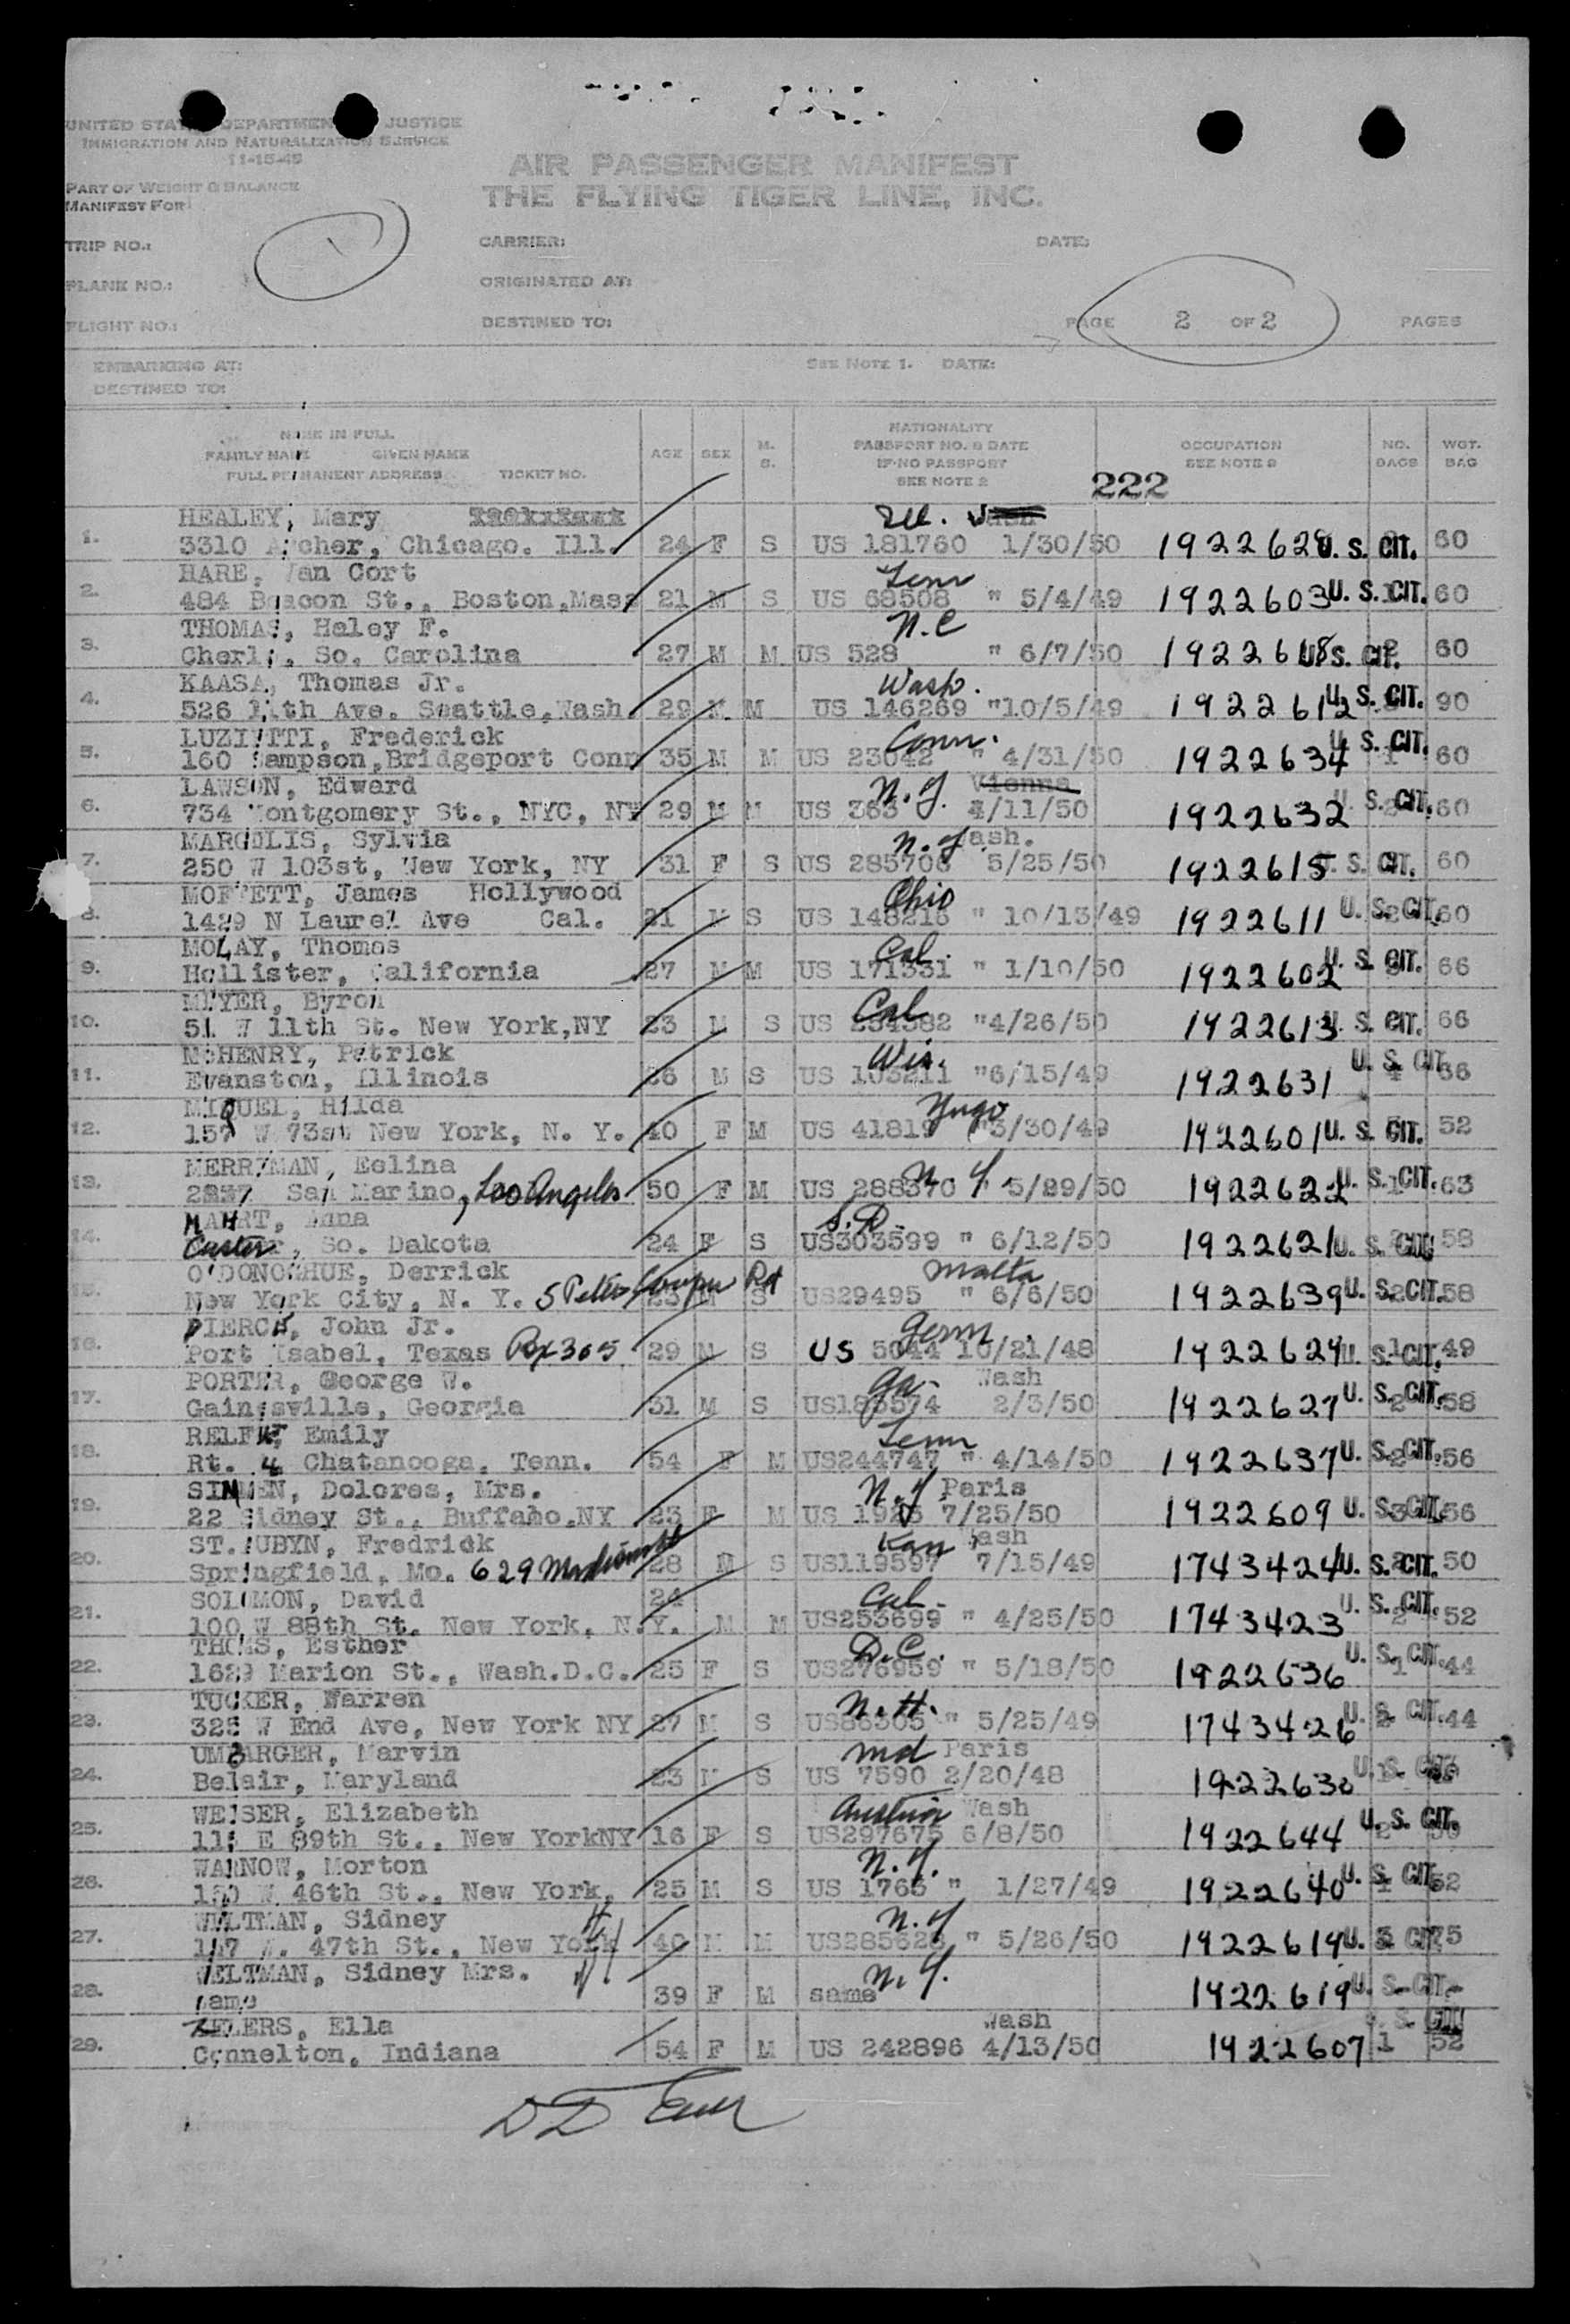 UNITED STATES DEPARTMENT JUSTICE
IMMIGRATION AND NATURALIZATION SERVICE
11-15-45
AIR PASSENGER MANIFEST
THE FLYING TIGER LINE, INC.
PART OF WEIGHT & BALANCE
MANIFEST FOR
TRIP NO.: CARRIER: DATE:
PLANE NO.: ORIGINATED AT:
FLIGHT NO.: DESTINED TO: PAGE 2 OF 2 PAGES
EMBARKING AT: SEE NOTE 1. DATE:
DESTINED TO:
NAME IN FULL
FAMILY NAME GIVEN NAME
FULL PERMANENT ADDRESS TICKET NO.
AGE SEX M. S.
NATIONALITY
PASSPORT NO. & DATE
IF NO PASSPORT
SEE NOTE 2
OCCUPATION
SEE NOTE 2
NO. BAGS
WGT. BAG
222
HEALEY, Mary Ill.
1. 3310 Archer, Chicago. Ill. 24 F S US 181760 1/30/50 1922628 U. S. CIT. 60
HARE, Van Cort Tenn
2. 484 Beacon St., Boston,Mass 21 M S US 68508 " 5/4/49 1922603 U. S. CIT. 60
THOMAS, Haley F. N.C
3. So. Carolina 27 M M US 528 " 6/7/50 1922618 U. S. CIT. 60
KAASA, Thomas Jr. Wash.
4. 526 Ave. Seattle,Wash. 29 M M US 146269 "10/5/49 1922612 U. S. CIT. 90
Frederick Conn.
5. 160 Sampson,Bridgeport Conn 35 M M US 23042 " 4/31/50 1922634 U. S. CIT. 1 60
LAWSON, Edward N.Y. Vienna
6. 734 Montgomery St., NYC, NY 29 M M US 363 4/11/50 1922632 U. S. CIT. 60
MARGOLIS, Sylvia N.Y Wash.
7. 250 W 103st, New York, NY 31 F S US 285708 5/25/50 1922615 U. S. CIT. 60
MOFFETT, James Hollywood Ohio
8. 1429 N Laurel Ave Cal. 21 M S US 148216 " 10/13/49 1922611 U. S. CIT. 60
MOLAY, Thomas Cal.
9. Hollister, California 27 M M US 171331 " 1/10/50 1922602 U. S. CIT. 66
MEYER, Byron Cal
10. 51 W 11th St. New York,NY 23 M S US "4/26/50 1922613 U. S. CIT. 66
McHENRY, Patrick Wis.
11. Evanston, Illinois 26 M S US 103211 "6/15/49 1922631 U. S. CIT. 66
MIQUEL, Hilda Yugo
12. 157 W 73st New York, N. Y. 40 F M US 41819 "3/30/49 1922601 U. S. CIT. 52
MERRYMAN, Eelina N.Y.
13. San Marino, Los Angeles 50 F M US 288370 " 5/29/50 1922622 U. S. CIT. 63
MAHRT, Anna S.D.
14. Custer, So. Dakota 24 F S US303599 " 6/12/50 1922621 U. S. CIT. 58
O'DONOGHUE, Derrick Malta
15. New York City, N. Y. 5 Peter Cooper Rd 23 M S US29495 " 6/6/50 1922639 U. S. CIT. 58
PIERCE, John Jr. Germ.
16. Port Isabel, Texas Box 305 29 M S US 5044 10/21/48 1922629 U. S. CIT. 49
PORTER, George W. Ga. Wash
17. Gainesville, Georgia 31 M S US183574 2/3/50 1922627 U. S. CIT. 58
Emily Tenn
18. Rt. 4 Chatanooga, Tenn. 54 F M US244747 " 4/14/50 1922637 U. S. CIT. 56
SIMMEN, Dolores, Mrs. N.Y Paris
19. 22 Sidney St., Buffalo,NY 23 F M US 1925 7/25/50 1922609 U. S. CIT. 56
ST.AUBYN, Fredrick Kan Wash
20. Springfield, Mo. 629 28 M S US119597 7/15/49 1743424 U. S. CIT. 50
SOLOMON, David 24 Cal.
21. 100 W 88th St. New York, N.Y. M M US253699 " 4/25/50 1743423 U. S. CIT. 52
THOMS, Esther D.C.
22. 1629 Marion St., Wash.D.C. 25 F S US276959 " 5/18/50 1922636 U. S. CIT. 44
TUCKER, Warren N.H.
23. 325 W End Ave, New York NY 27 M S US86305 " 5/25/49 1743426 U. S. CIT. 44
UMBARGER, Marvin Md Paris
24. Belair, Maryland 23 M S US 7590 2/20/48 1922630 U. S. CIT.
WEISER, Elizabeth Austria Wash
25. E 89th St., New YorkNY 16 F S US297675 6/8/50 1922644 U. S. CIT.
WARNOW, Morton N.Y.
26. W 46th St., New York, 25 M S US 1765 " 1/27/49 1922640 U. S. CIT. 52
WELTMAN, Sidney N.Y
27. 47th St., New York 40 M M US285628 " 5/26/50 1922619 U. S. CIT. 75
WELTMAN, Sidney Mrs. N.Y.
28. same 39 F M same 1922619 U. S. CIT.
Ella Wash
29. Connelton, Indiana 54 F M US 242896 4/13/50 1922607 1 U. S. CIT. 52